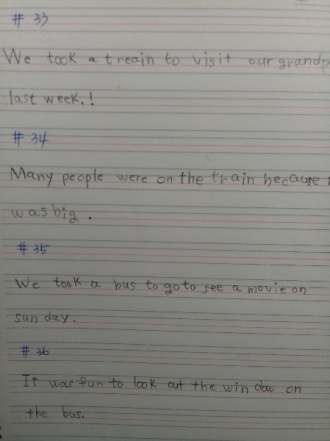 # 33
We took a treain to visit our grandp
last week.!
# 34
Many people were on the train because
was big.
# 35
We took a bus to go to see a movie on
sun day.
# 36
It was fun to look out the win dow on
the bus.